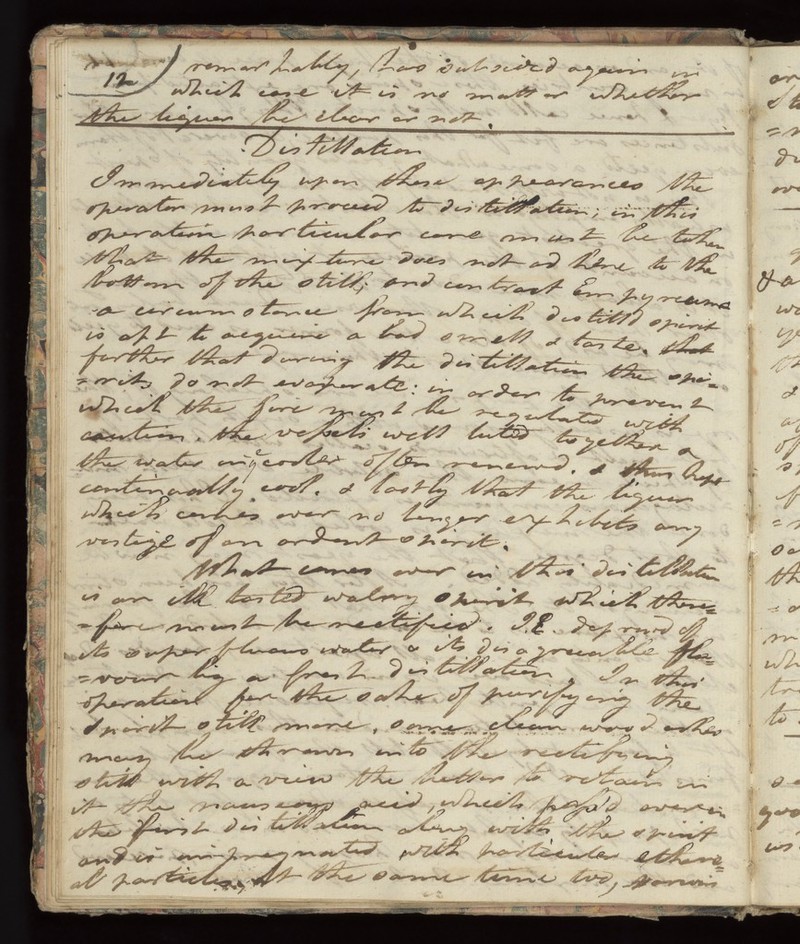 12
remarkably, has subsided again in
which case it is no matter whether
the liquer be clear or not.
Distillation
Immediately upon these appearances the
operator must proceed to distillation; in this
operation particular care must be taken
that the mixture does not adhere to the
bottom of the still; and contract Empyreuma
a circumstance from which distilld spirit
is apt to acquire a bad smell & taste. that
further that during the distillation the spi=
=rits do not evaporate: in order to prevent
which the fire must be regulated with
caution. the vessels well luted together &
the water in ye cooler often renewd. & thus kept
continually cool. & lastly that the liquer
which comes over no longer exhibits any
vestige of an ardent spirit.
What comes over in this distillation
is an ill tasted watry spirit which there=
=fore must be rectified. I.E. deprived of
its superfluous water & its disagreeable fla=
=vour by a fresh distillation. In this
operation for the sake of purifying the
spirit still more, some clean wood ashes
may be thrown into the rectifying
still with a view the better to retain in
it the nauseous acid, which pass'd over in
the first distillation along with the spirit
and is impregnated with particular etherе=
al particles. At the same time too, various